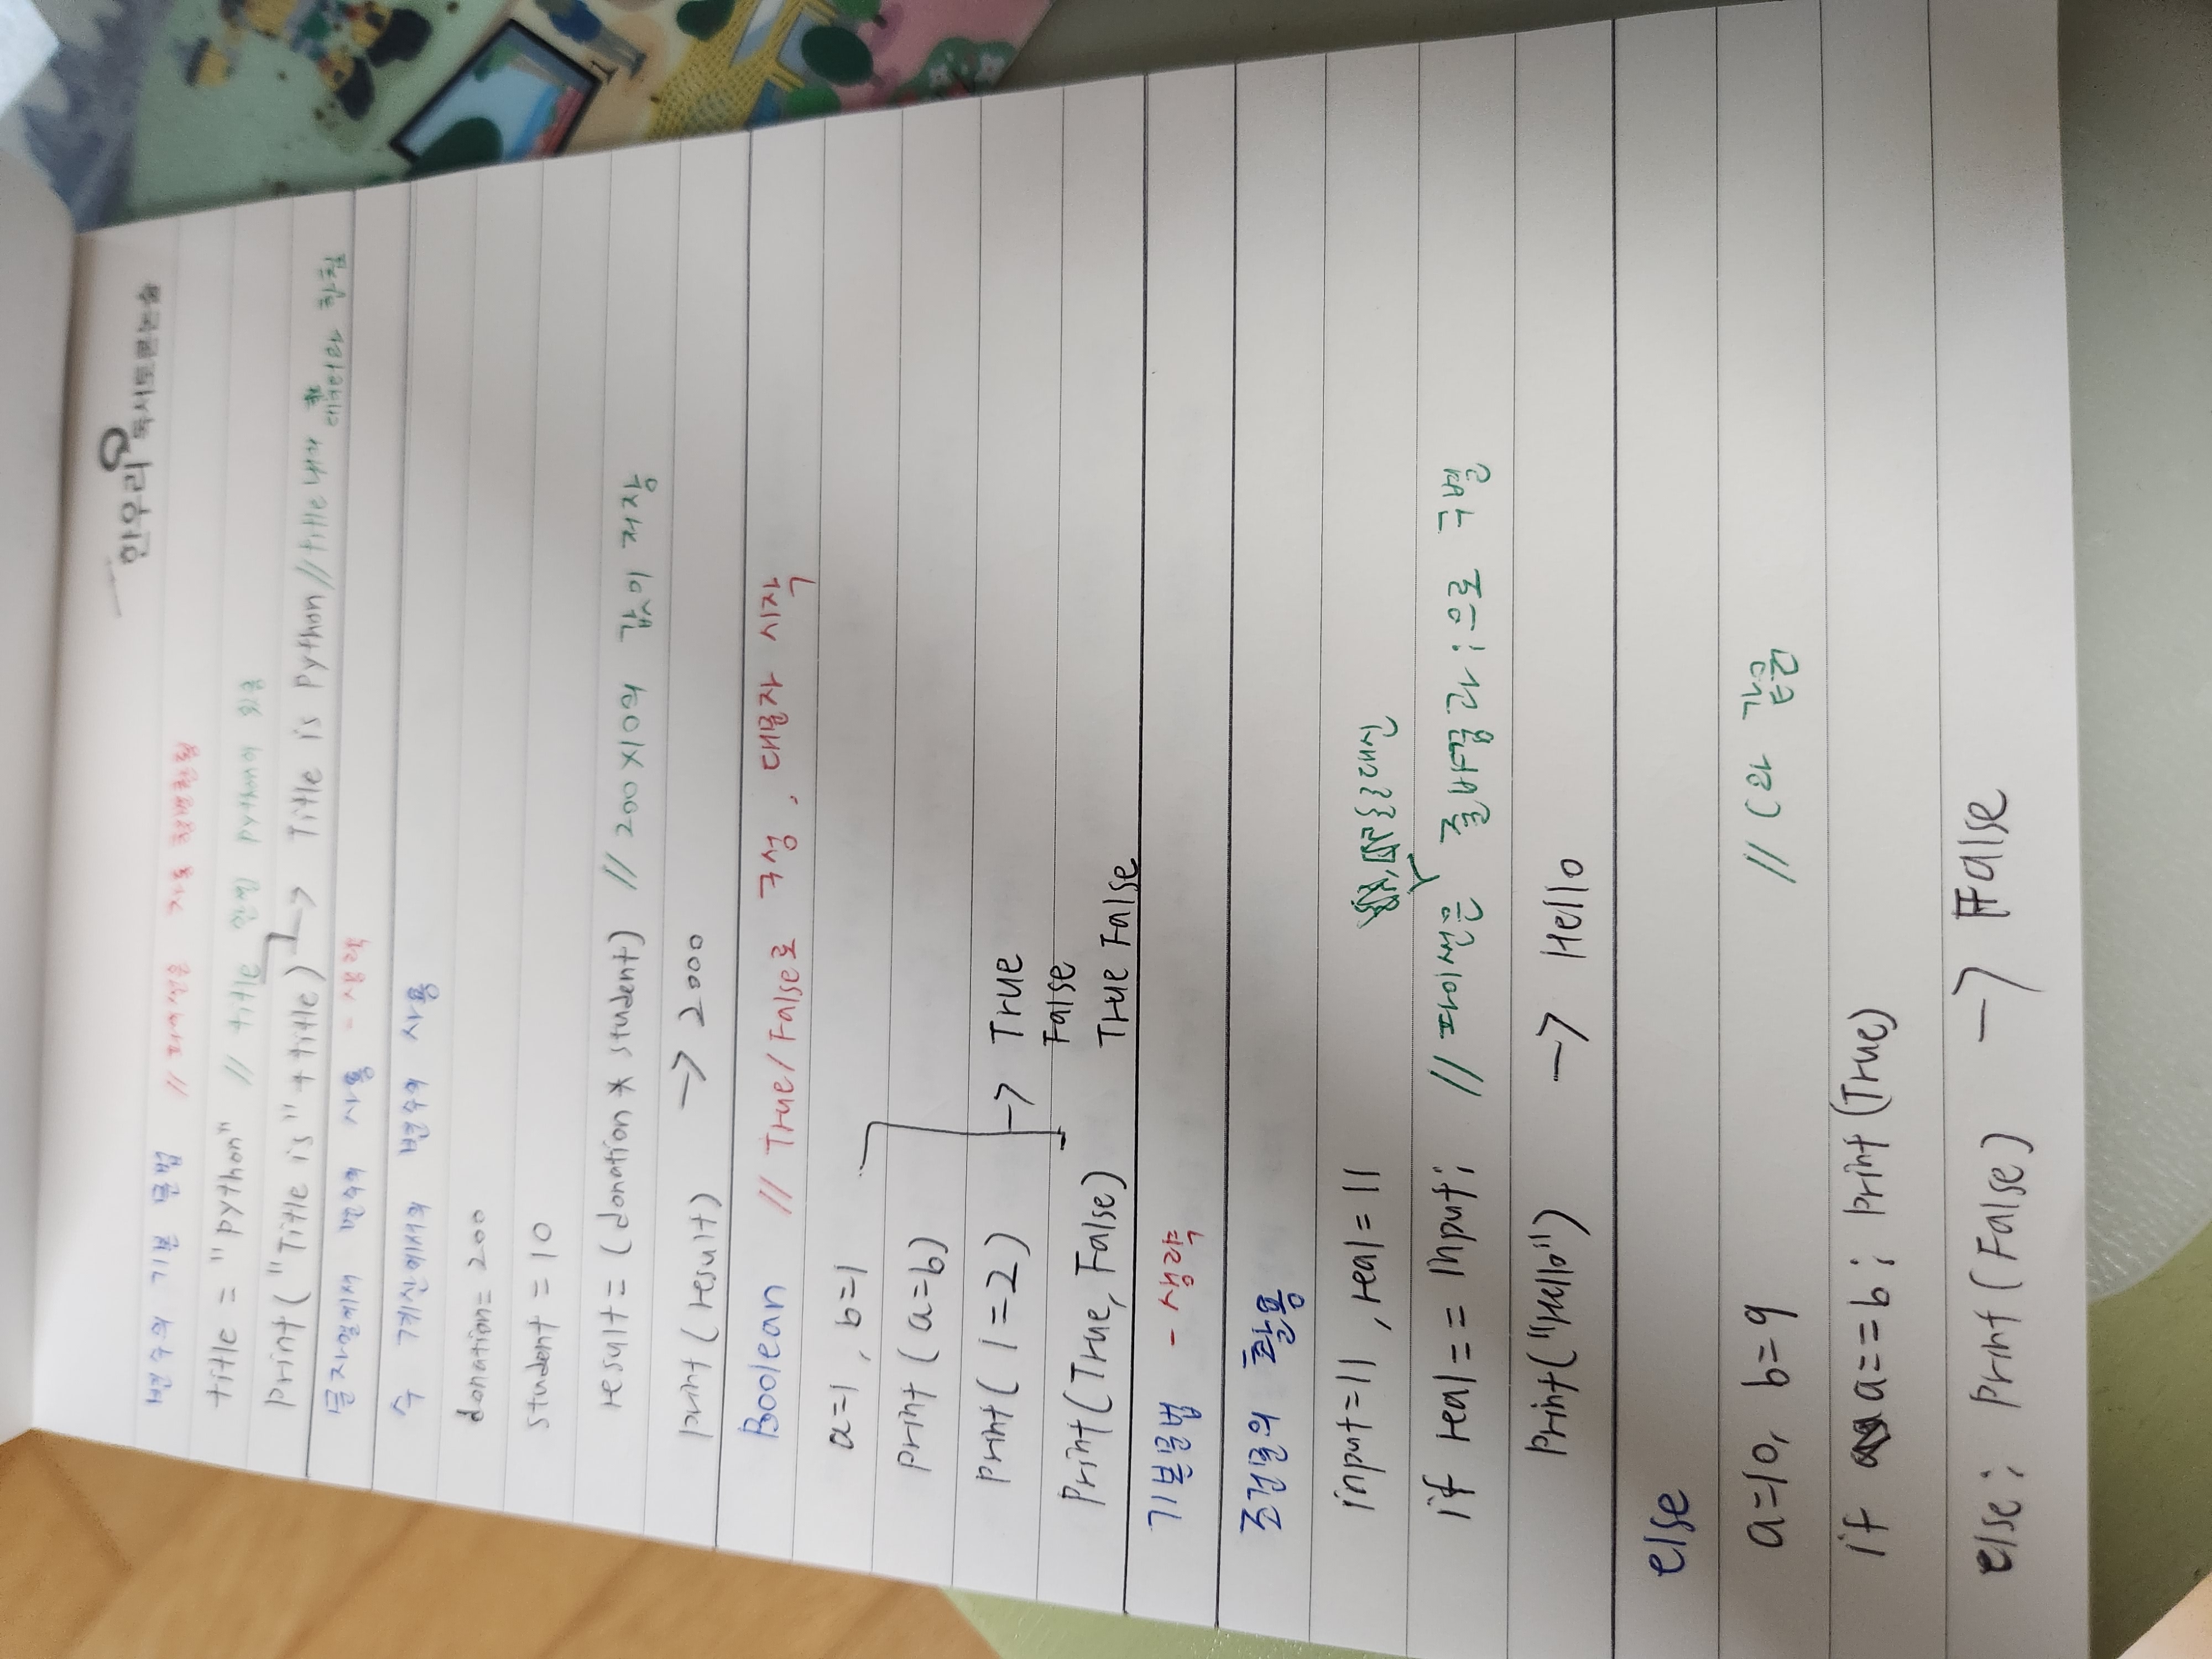 한우리 독서토론논술
변수의 기본 문법 // 파이썬은 자동 형변환됨
title = "python" // title 안엔 python이 있음
print("Title is" + title) -> Title is Python // title 내의 데이터와 합침
문자열에서 변수의 사용 - 생략
수 계산에서의 변수의 사용
donation= 200
student = 10
result = (donation * student) // 200×10의 값이 저장
print(result) -> 2000
Boolean // True/False로 구성, 대문자 시작
a=1, b=1
print(a=b)
print(1=2) -> True
False
Print(True, False) True False
기본문법 - 생략
조건문의 활용
input=11, real=11
{}대신
if real == input; // 파이썬은 줄바꿈과 ;으로 구별
print("Hello") -> Hello
else
a=10, b=9 // C와 같음
if a==b; print(True)
else; print(False) -> False